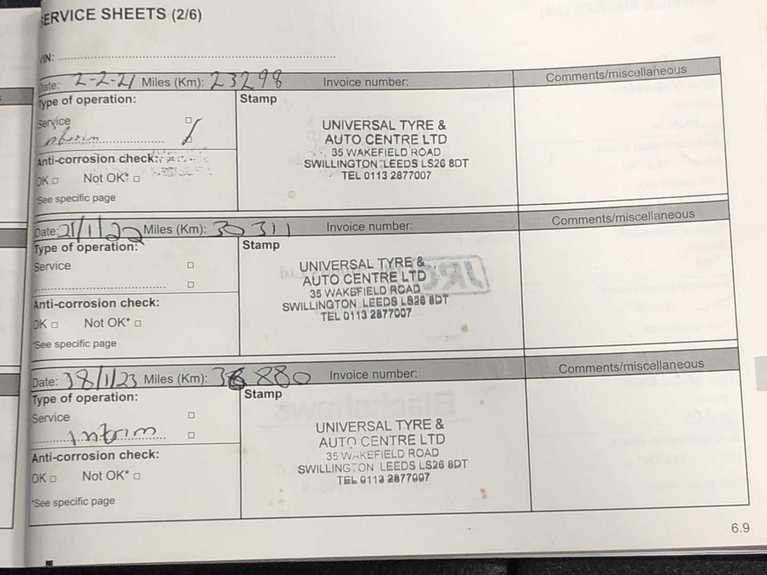 ERVICE SHEETS (2/6)
VIN:
Date: 2-2-21 Miles (Km): 23298 Invoice number: Comments/miscellaneous
Type of operation: Stamp
Service
Interim
UNIVERSAL TYRE &
AUTO CENTRE LTD
35 WAKEFIELD ROAD
SWILLINGTON LEEDS LS26 8DT
TEL 0113 2877007
Anti-corrosion check:
OK Not OK*
*See specific page
Date: 21/1/22 Miles (Km): 30311 Invoice number: Comments/miscellaneous
Type of operation: Stamp
Service
UNIVERSAL TYRE &
AUTO CENTRE LTD
35 WAKEFIELD ROAD
SWILLINGTON LEEDS LS26 8DT
TEL 0113 2877007
Anti-corrosion check:
OK Not OK*
*See specific page
Date: /1/23 Miles (Km): 36880 Invoice number: Comments/miscellaneous
Type of operation: Stamp
Service
Interim
UNIVERSAL TYRE &
AUTO CENTRE LTD
35 WAKEFIELD ROAD
SWILLINGTON LEEDS LS26 8DT
TEL 0113 2877007
Anti-corrosion check:
OK Not OK*
*See specific page
6.9